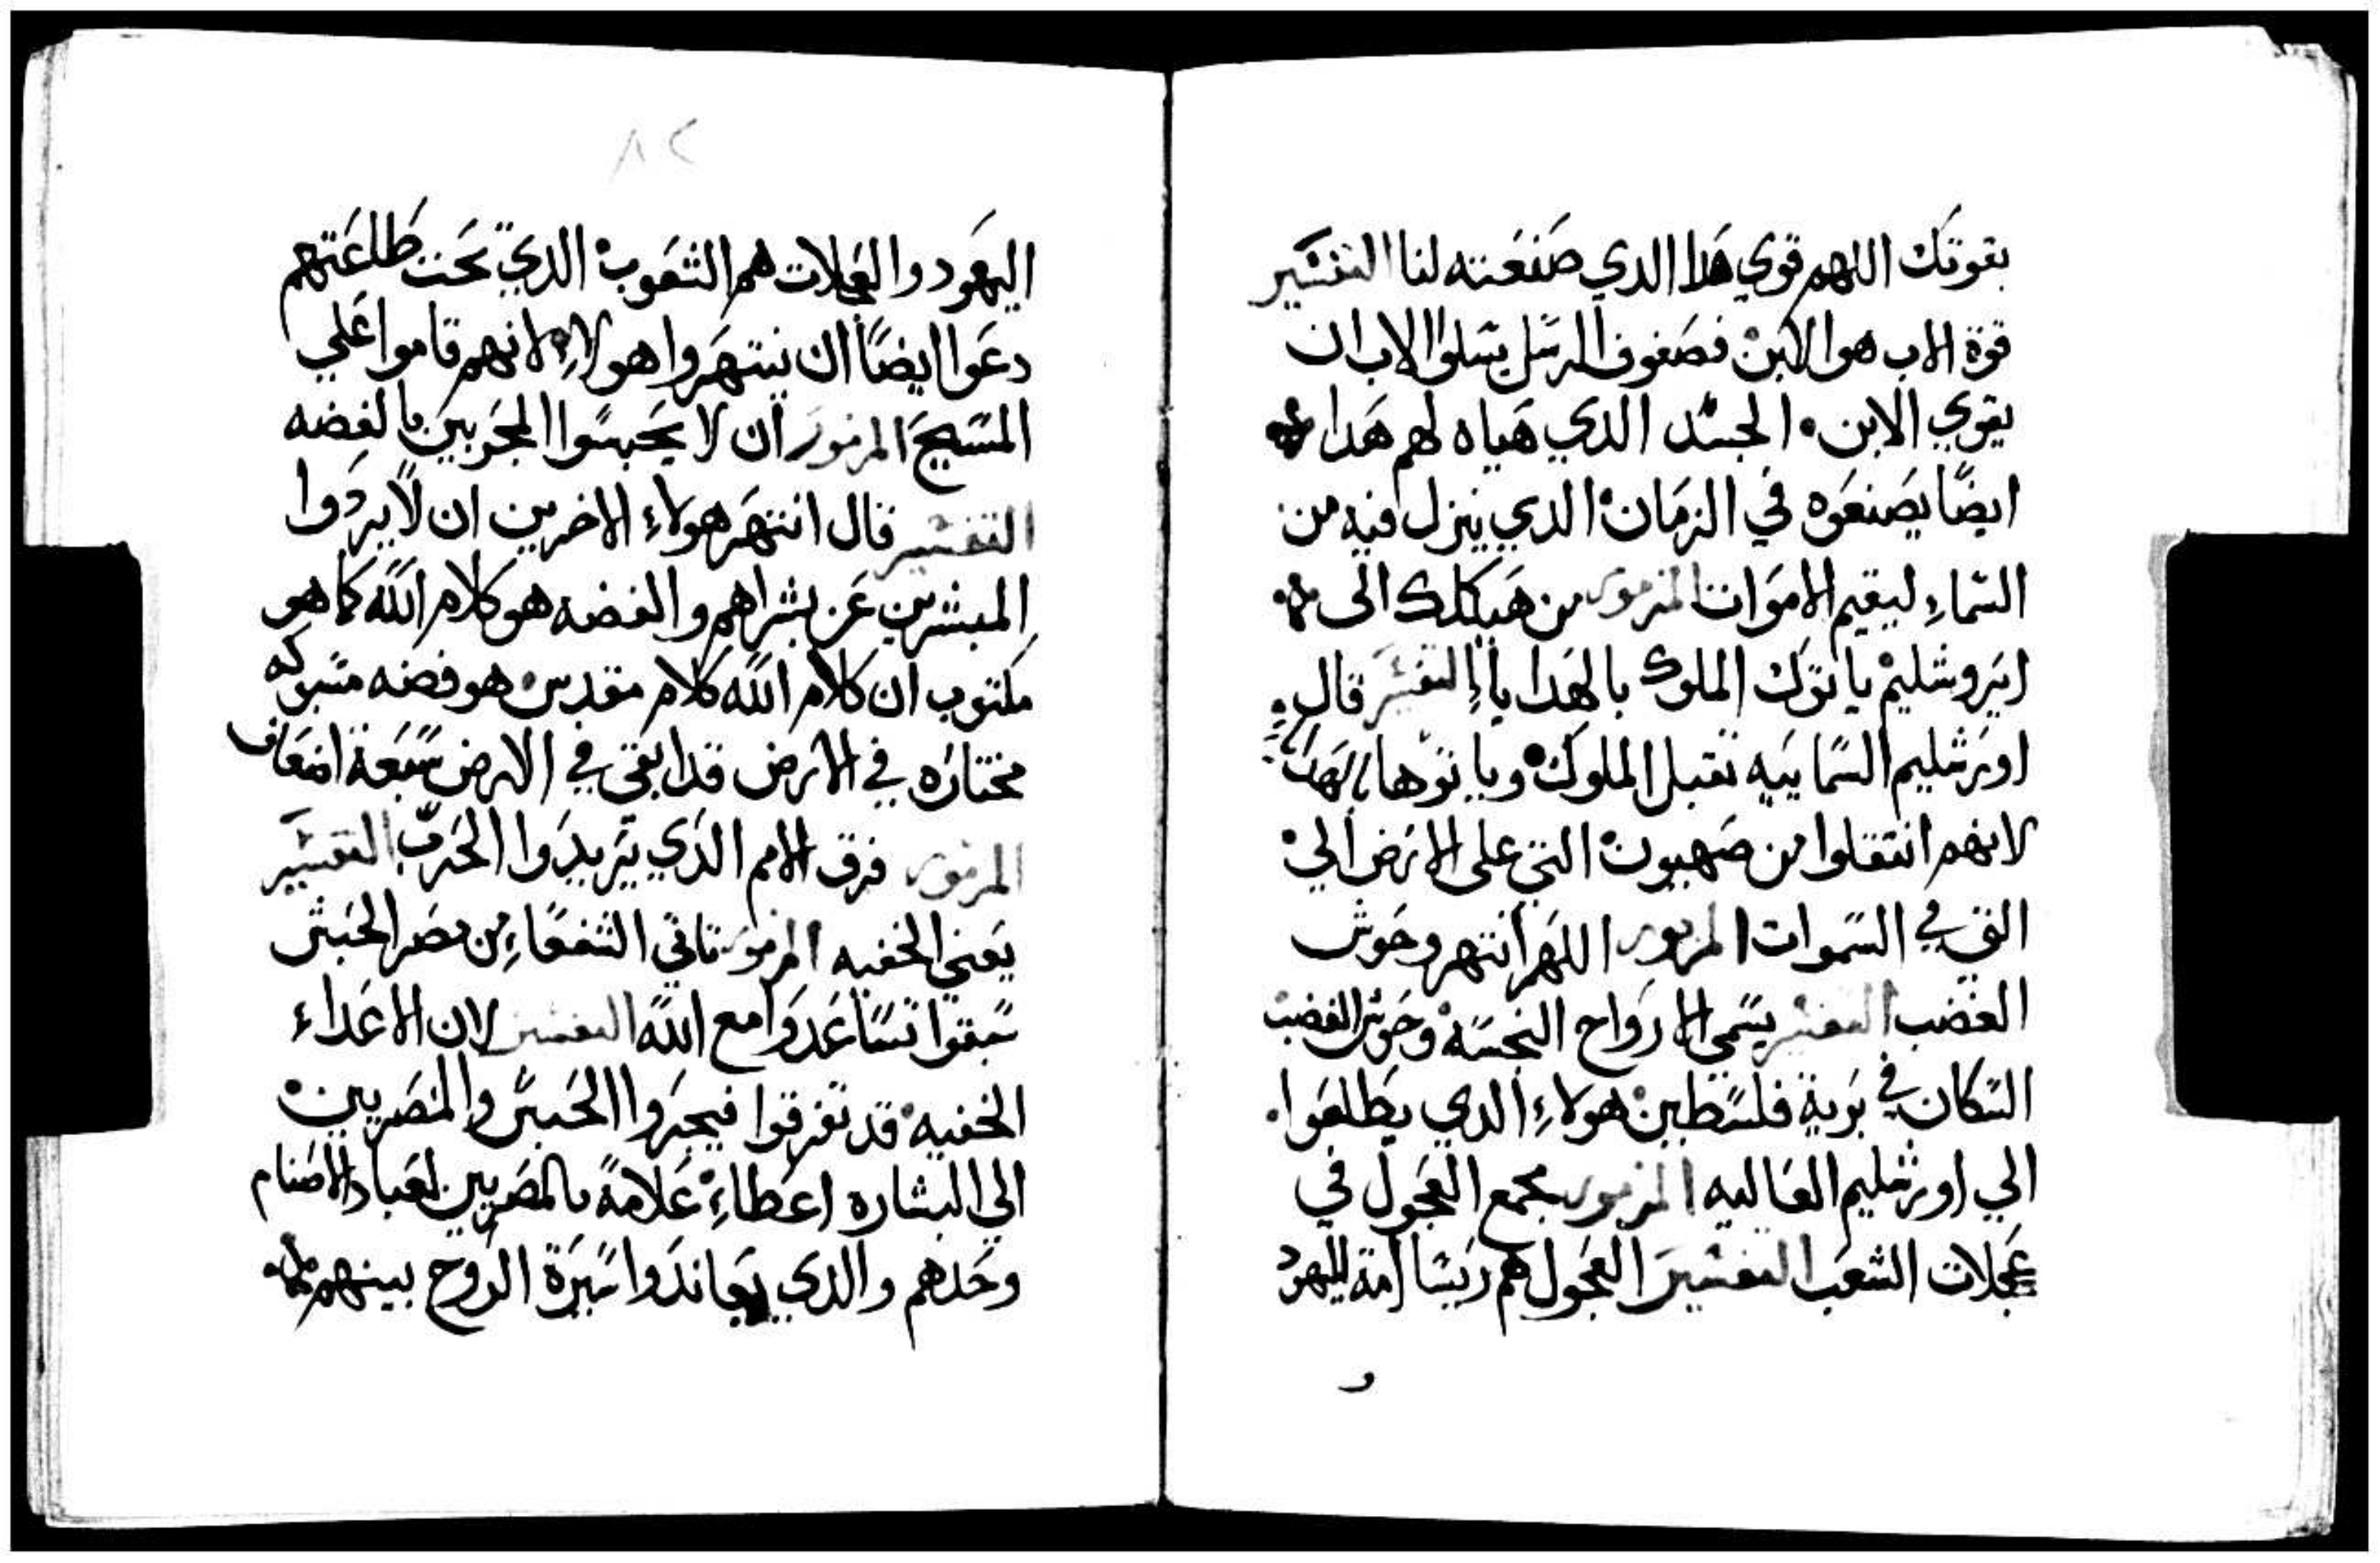 بقوتك اللهم قوي هذا الدي صنعته لنا التفسير
قوة الاب هوا الابن فصفوف الرسل يسلوا الاب ان
يقوي الابن الجسد الدي هياه لهم هدا
ايضًا يصنعوه في الزمان الدي ينزل فيه من
السماءِ ليقيم الاموات المزمور من هيكلك الى
ايروشليم ياتوك الملوك بالهدايا التفسير قال
اورشليم السماييه تقبل الملوك وياتوها بالهدايا
لانهم انتقلوا من صهيون التي على الارض الي
التي في السموات المزمور اللهم انتهر وحوش
الغضب التفسير يسمي الارواح النجسة وحوش الغضب
السكان في برية فلسطين هولاءِ الدي يطلعوا
الي اورشليم العاليه المزمور مجمع العجول في
عجلات الشعب التفسير العجول هم ريسا امة اليهود
و
٨٢
اليهود والعجلات هم الشعوب الدي تحت طاعتهم
دعوا ايضًا ان ينتهروا هولاءِ لانهم قاموا علي
المسيح المزمور ان لا يحبسوا المجربين بالفضه
التفسير قال انتهر هولاء الاخرين ان لا يردوا
المبشرين عن بشراهم والفضه هو كلام الله كما هو
مكتوب ان كلام الله كلام مقدس هو فضه مسبوكه
مختاره في الارض قد ابقي في الارض سبعة اضعاف
المزمور فرق الامم الدي يريدوا الحرب التفسير
يعني الخفيه المزمور تاتي الشفعاءِ من مصر الحبش
سبقوا تساعدوا مع الله التفسير لان الاعداء
الخفيه قد تفرقوا فيجروا الحبش والمصريين
الي البشاره اعطاءِ علامة بالمصريين لعباد الاصنام
وحدهم والدي يعاندوا سيرة الروح بينهم